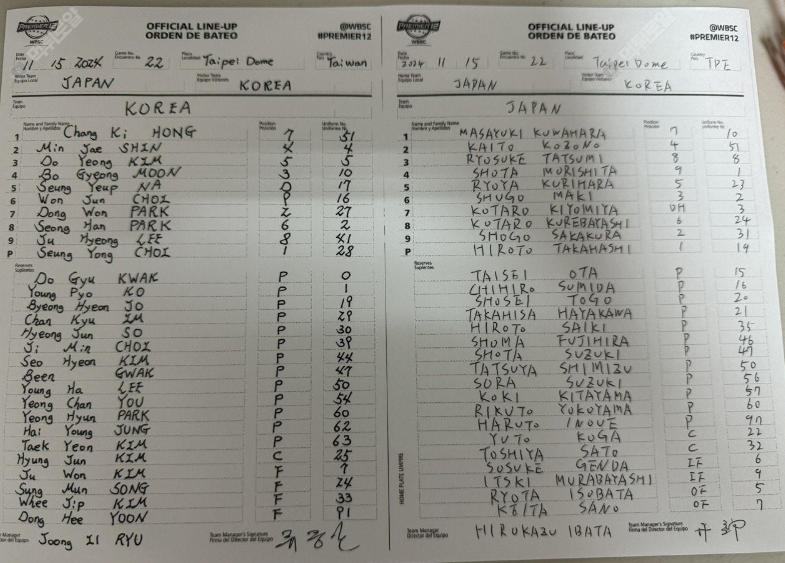 PREMIER12
WBSC
OFFICIAL LINE-UP
ORDEN DE BATEO
@WBSC
#PREMIER12
Date
Fecha
11 15 2024
Game No.
Encuentro No.
22
Place
Localidad
Taipei Dome
Country
País
Taiwan
Home Team
Equipo Local
JAPAN
Visitor Team
Equipo Visitante
KOREA
Team
Equipo
KOREA
Name and Family Name
Nombre y Apellidos
Position
Posición
Uniform No.
Uniforme Nr.
1 Chang Ki HONG 7 51
2 Min Jae SHIN 4 4
3 Do Yeong KIM 5 5
4 Bo Gyeong MOON 3 10
5 Seung Yeup NA D 17
6 Won Jun CHOI 9 16
7 Dong Won PARK 2 27
8 Seong Han PARK 6 2
9 Ju Hyeong LEE 8 41
P Seung Yong CHOI 1 28
Reserves
Suplentes
Do Gyu KWAK P 0
Young Pyo KO P 1
Byeong Hyeon JO P 19
Chan Kyu IM P 29
Hyeong Jun SO P 30
Ji Min CHOI P 39
Seo Hyeon KIM P 44
Been GWAK P 47
Young Ha LEE P 50
Yeong Chan YOU P 54
Yeong Hyun PARK P 60
Hai Young JUNG P 62
Taek Yeon KIM P 63
Hyung Jun KIM C 25
Ju Won KIM F 7
Sung Mun SONG F 24
Whee Jip KIM F 33
Dong Hee YOON F 91
Team Manager
Joong Il RYU
Team Manager's Signature
Firma del Director del Equipo
PREMIER12
WBSC
OFFICIAL LINE-UP
ORDEN DE BATEO
@WBSC
#PREMIER12
Date
Fecha
2024 11 15
Game No.
Encuentro No.
22
Place
Localidad
Taipei Dome
Country
País
TPE
Home Team
Equipo Local
JAPAN
Visitor Team
Equipo Visitante
KOREA
Team
Equipo
JAPAN
Name and Family Name
Nombre y Apellidos
Position
Posición
Uniform No.
Uniforme Nr.
1 MASAYUKI KUWAHARA 7 10
2 KAITO KOZONO 4 51
3 RYOSUKE TATSUMI 8 8
4 SHOTA MORISHITA 9 1
5 RYOYA KURIHARA 5 23
6 SHUGO MAKI 3 2
7 KOTARO KIYOMIYA DH 3
8 KOTARO KUREBAYASHI 6 24
9 SHOGO SAKAKURA 2 31
P HIROTO TAKAHASHI 1 19
Reserves
Suplentes
TAISEI OTA P 15
CHIHIRO SUMIDA P 16
SHOSEI TOGO P 20
TAKAHISA HAYAKAWA P 21
HIROTO SAIKI P 35
SHOMA FUJIHIRA P 46
SHOTA SUZUKI P 47
TATSUYA SHIMIZU P 50
SORA SUZUKI P 56
KOKI KITAYAMA P 57
RIKUTO YOKOYAMA P 60
HARUTO INOUE P 97
YUTO KOGA C 22
TOSHIYA SATO C 32
SOSUKE GENDA IF 6
ITSKI MURABAYASHI IF 9
RYOTA ISOBATA OF 5
KEITA SANO OF 7
HOME PLATE UMPIRE
Team Manager
HIROKAZU IBATA
Team Manager's Signature
Firma del Director del Equipo